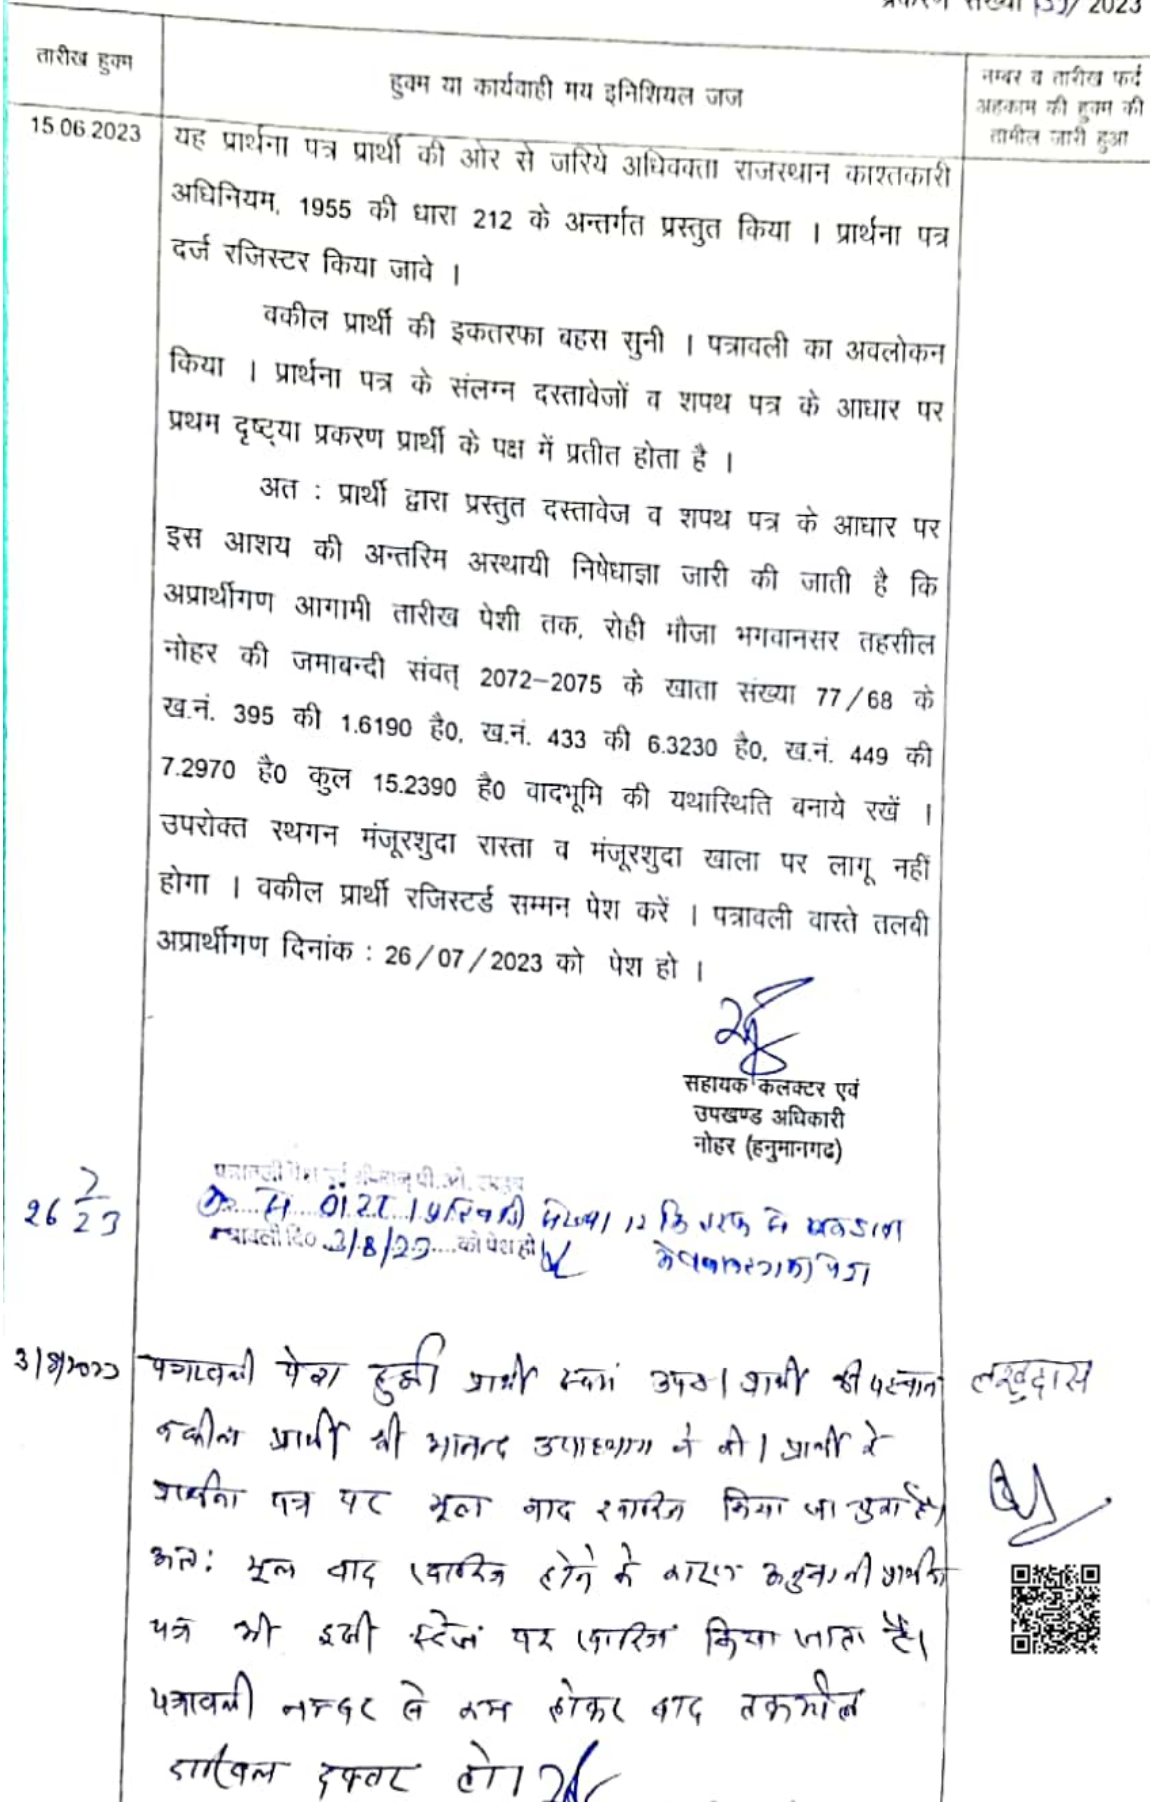 प्रकरण संख्या 2023
तारीख हुक्म
हुक्म या कार्यवाही मय इनिशियल जज
नम्बर व तारीख फर्द
अहकाम की हुक्म की
तामील जारी हुआ
15.06.2023
यह प्रार्थना पत्र प्रार्थी की ओर से जरिये अधिवक्ता राजस्थान काश्तकारी
अधिनियम, 1955 की धारा 212 के अन्तर्गत प्रस्तुत किया । प्रार्थना पत्र
दर्ज रजिस्टर किया जावे ।
वकील प्रार्थी की इकतरफा बहस सुनी । पत्रावली का अवलोकन
किया । प्रार्थना पत्र के संलग्न दस्तावेजों व शपथ पत्र के आधार पर
प्रथम दृष्ट्या प्रकरण प्रार्थी के पक्ष में प्रतीत होता है ।
अत : प्रार्थी द्वारा प्रस्तुत दस्तावेज व शपथ पत्र के आधार पर
इस आशय की अन्तरिम अस्थायी निषेधाज्ञा जारी की जाती है कि
अप्रार्थीगण आगामी तारीख पेशी तक, रोही मौजा भगवानसर तहसील
नोहर की जमाबन्दी संवत् 2072–2075 के खाता संख्या 77/68 के
ख.नं. 395 की 1.6190 है0, ख.नं. 433 की 6.3230 है0, ख.नं. 449 की
7.2970 है0 कुल 15.2390 है0 वादभूमि की यथास्थिति बनाये रखें ।
उपरोक्त स्थगन मंजूरशुदा रास्ता व मंजूरशुदा खाला पर लागू नहीं
होगा । वकील प्रार्थी रजिस्टर्ड सम्मन पेश करें । पत्रावली वास्ते तलबी
अप्रार्थीगण दिनांक : 26/07/2023 को पेश हो ।
सहायक कलक्टर एवं
उपखण्ड अधिकारी
नोहर (हनुमानगढ)
26 7/23
पत्रावली पेश हुई श्रीमान् पी.ओ.
पत्रावली दि० 3/8/23 को पेश हो
3/8/2023
पत्रावली पेश हुई प्रार्थी स्वयं उप० । प्रार्थी की पहचान
वकील प्रार्थी श्री आनन्द उपाध्याय ने की । प्रार्थी के
प्रार्थना पत्र पर मूल वाद खारिज किया जा चुका है।
अत: मूल वाद खारिज होने के कारण प्रार्थना
पत्र भी इसी स्टेज पर खारिज किया जाता है।
पत्रावली नम्बर से कम होकर बाद तकमील
दाखिल दफ्तर हो।